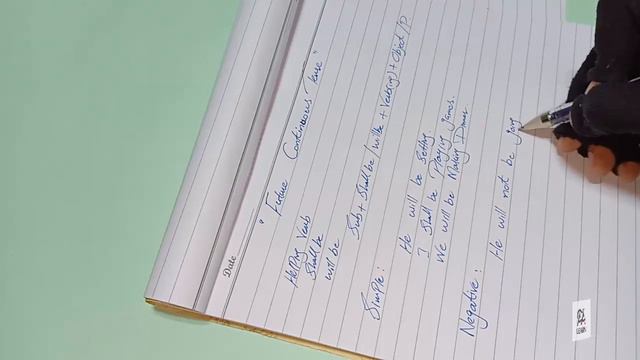 Date
"Future Continuous Tense"
Helping Verb
Shall be
will be
Sub + Shall be / will be + Verb(ing) + object / P
Simple:
He will be
I Shall be Playing games.
We will be Making Dinner
Negative:
He will not be